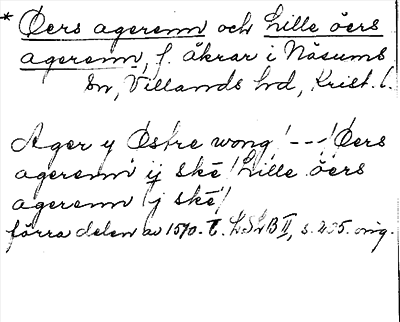 * Öers agerenn och Lille öers
agerenn, f. åkrar i Näsums
sn, Villands hd, Krist. l.
Ager y Østre wong /---/ Öers
agerenn ij ske / Lille öers
agerenn j ske /
förra delen av 1570-t. LSLB II, s. 235. orig.